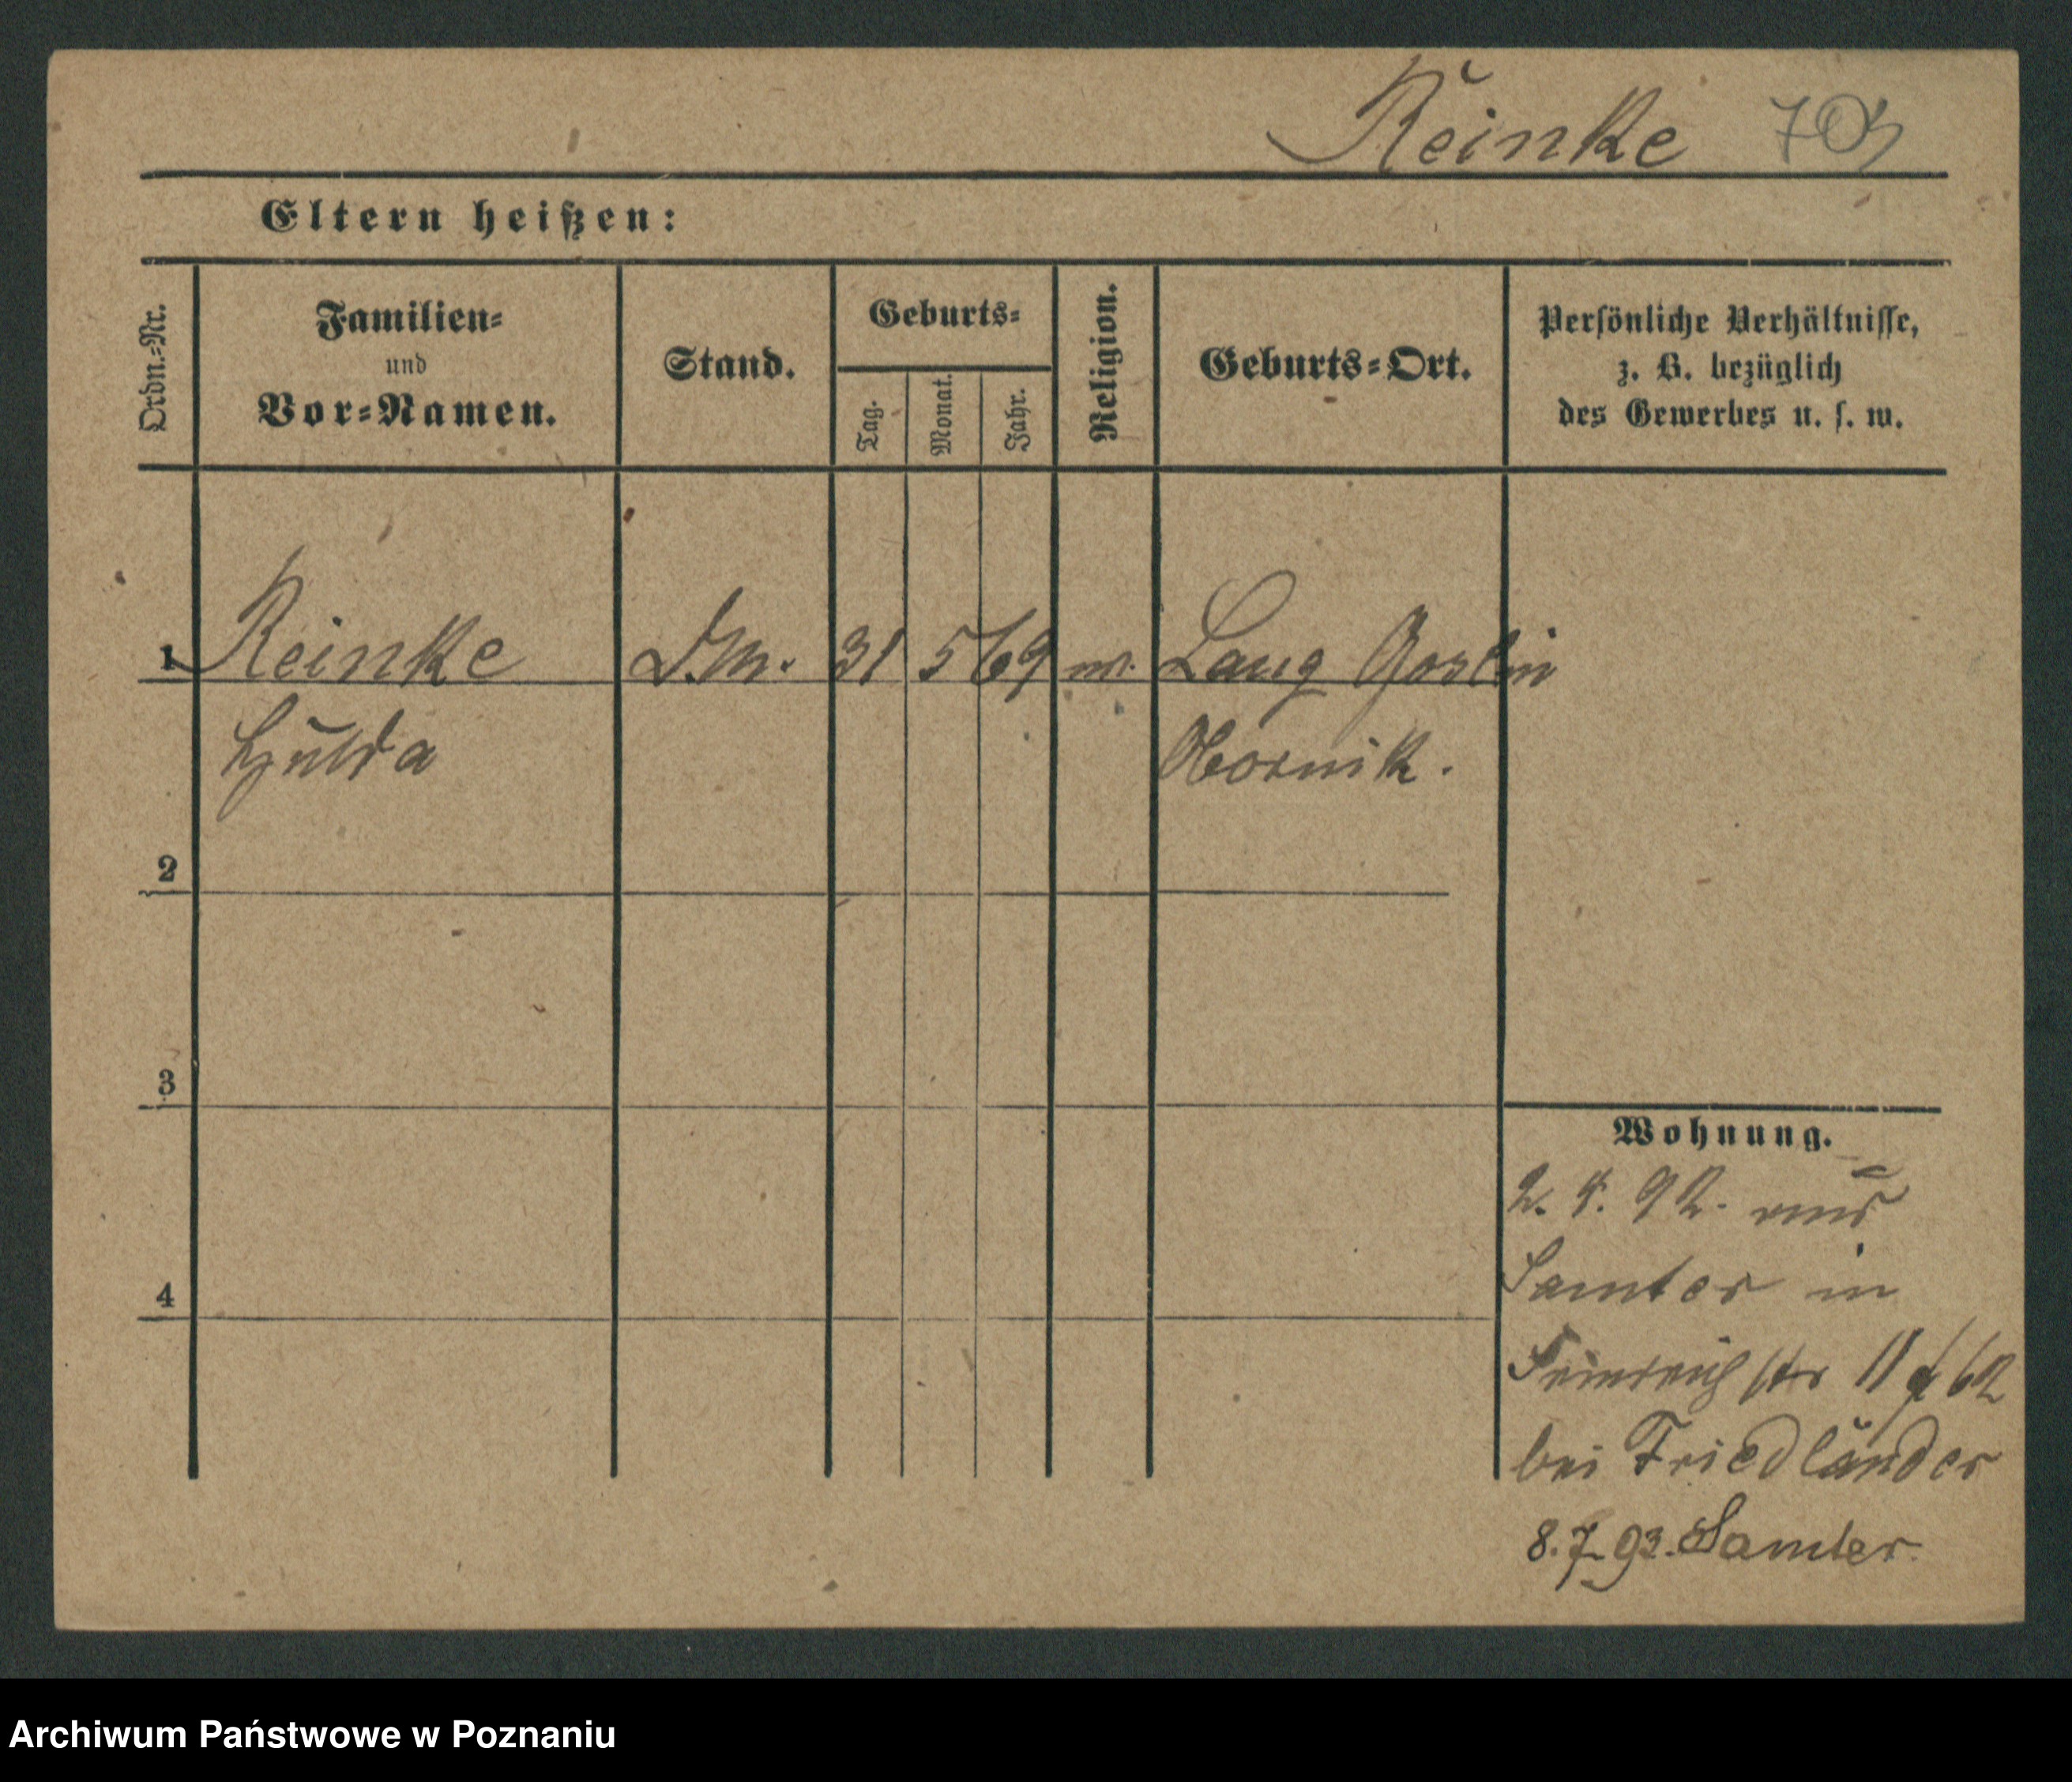 Reinke 703
Eltern heißen:
Ordn.=Nr.
Familien=
und
Vor=Namen.
Stand.
Geburts=
Tag.
Monat.
Jahr.
Religion.
Geburts=Ort.
Persönliche Verhältnisse,
z. B. bezüglich
des Gewerbes u. s. w.
1 Reinke D.M. 31 5 69 Lang Goslin
Hulda Obornik.
2
3
4
Wohnung.
2. 4. 92. aus
Samter in
bei Friedländer
8.7.93. Samter.
Archiwum Państwowe w Poznaniu